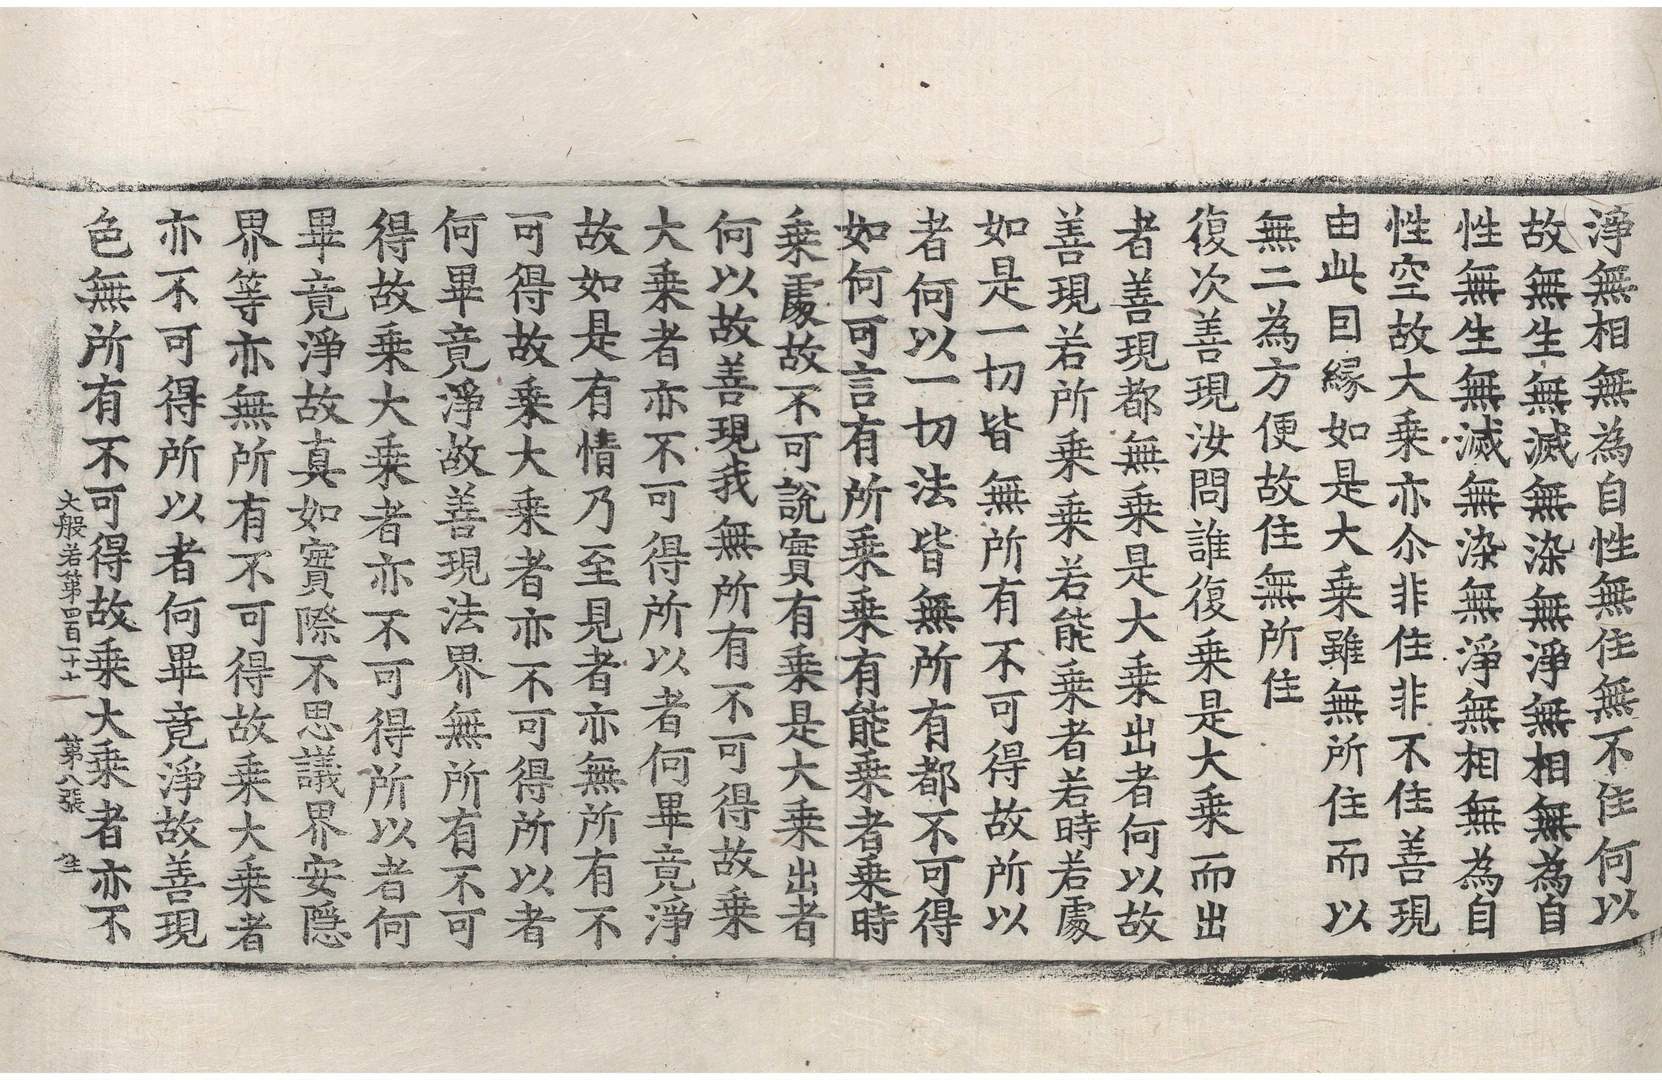 淨無相無為自性無住無不住何以
故無生無滅無染無淨無相無為自
性無生無滅無染無淨無相無為自
性空故大乗亦尒非住非不住善現
由此因縁如是大乗雖無所住而以
無二為方便故住無所住
復次善現汝問誰復乗是大乗而出
者善現都無乗是大乗出者何以故
善現若所乗乗若能乗者若時若處
如是一切皆無所有不可得故所以
者何以一切法皆無所有都不可得
如何可言有所乗乗有能乗者乗時
乗處故不可說實有乗是大乗出者
何以故善現我無所有不可得故乗
大乗者亦不可得所以者何畢竟淨
故如是有情乃至見者亦無所有不
可得故乗大乗者亦不可得所以者
何畢竟淨故善現法界無所有不可
得故乗大乗者亦不可得所以者何
畢竟淨故真如實際不思議界安隱
界等亦無所有不可得故乗大乗者
亦不可得所以者何畢竟淨故善現
色無所有不可得故乗大乗者亦不
大般若第四百一十七 第八張 往